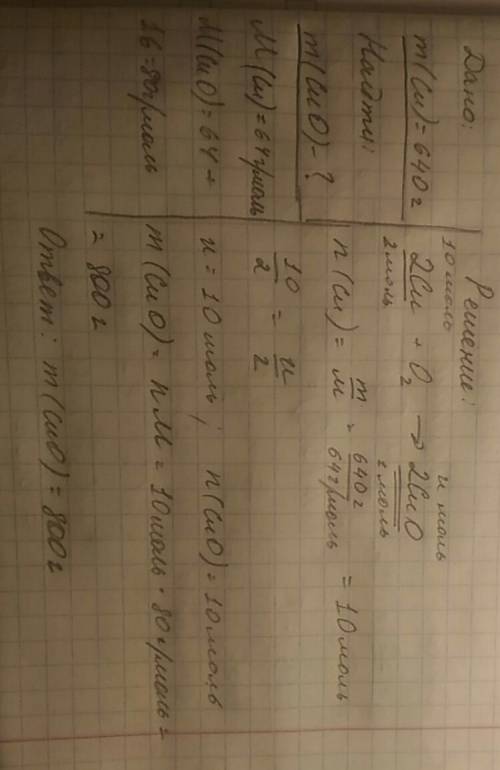 Дано:
m(Cu)=640г
Найти:
m(CuO)-?
M(Cu)=64г/моль
M(CuO)=64+
16=80г/моль
Решение:
10 моль и моль
2Cu + O₂ → 2CuO
2моль 2моль
n(Cu) = m/M = 640г/64г/моль = 10моль
10/2 = и/2
и = 10 моль; n(CuO)=10моль
m(CuO)= nM = 10моль · 80г/моль=
= 800г
Ответ: m(CuO)=800г